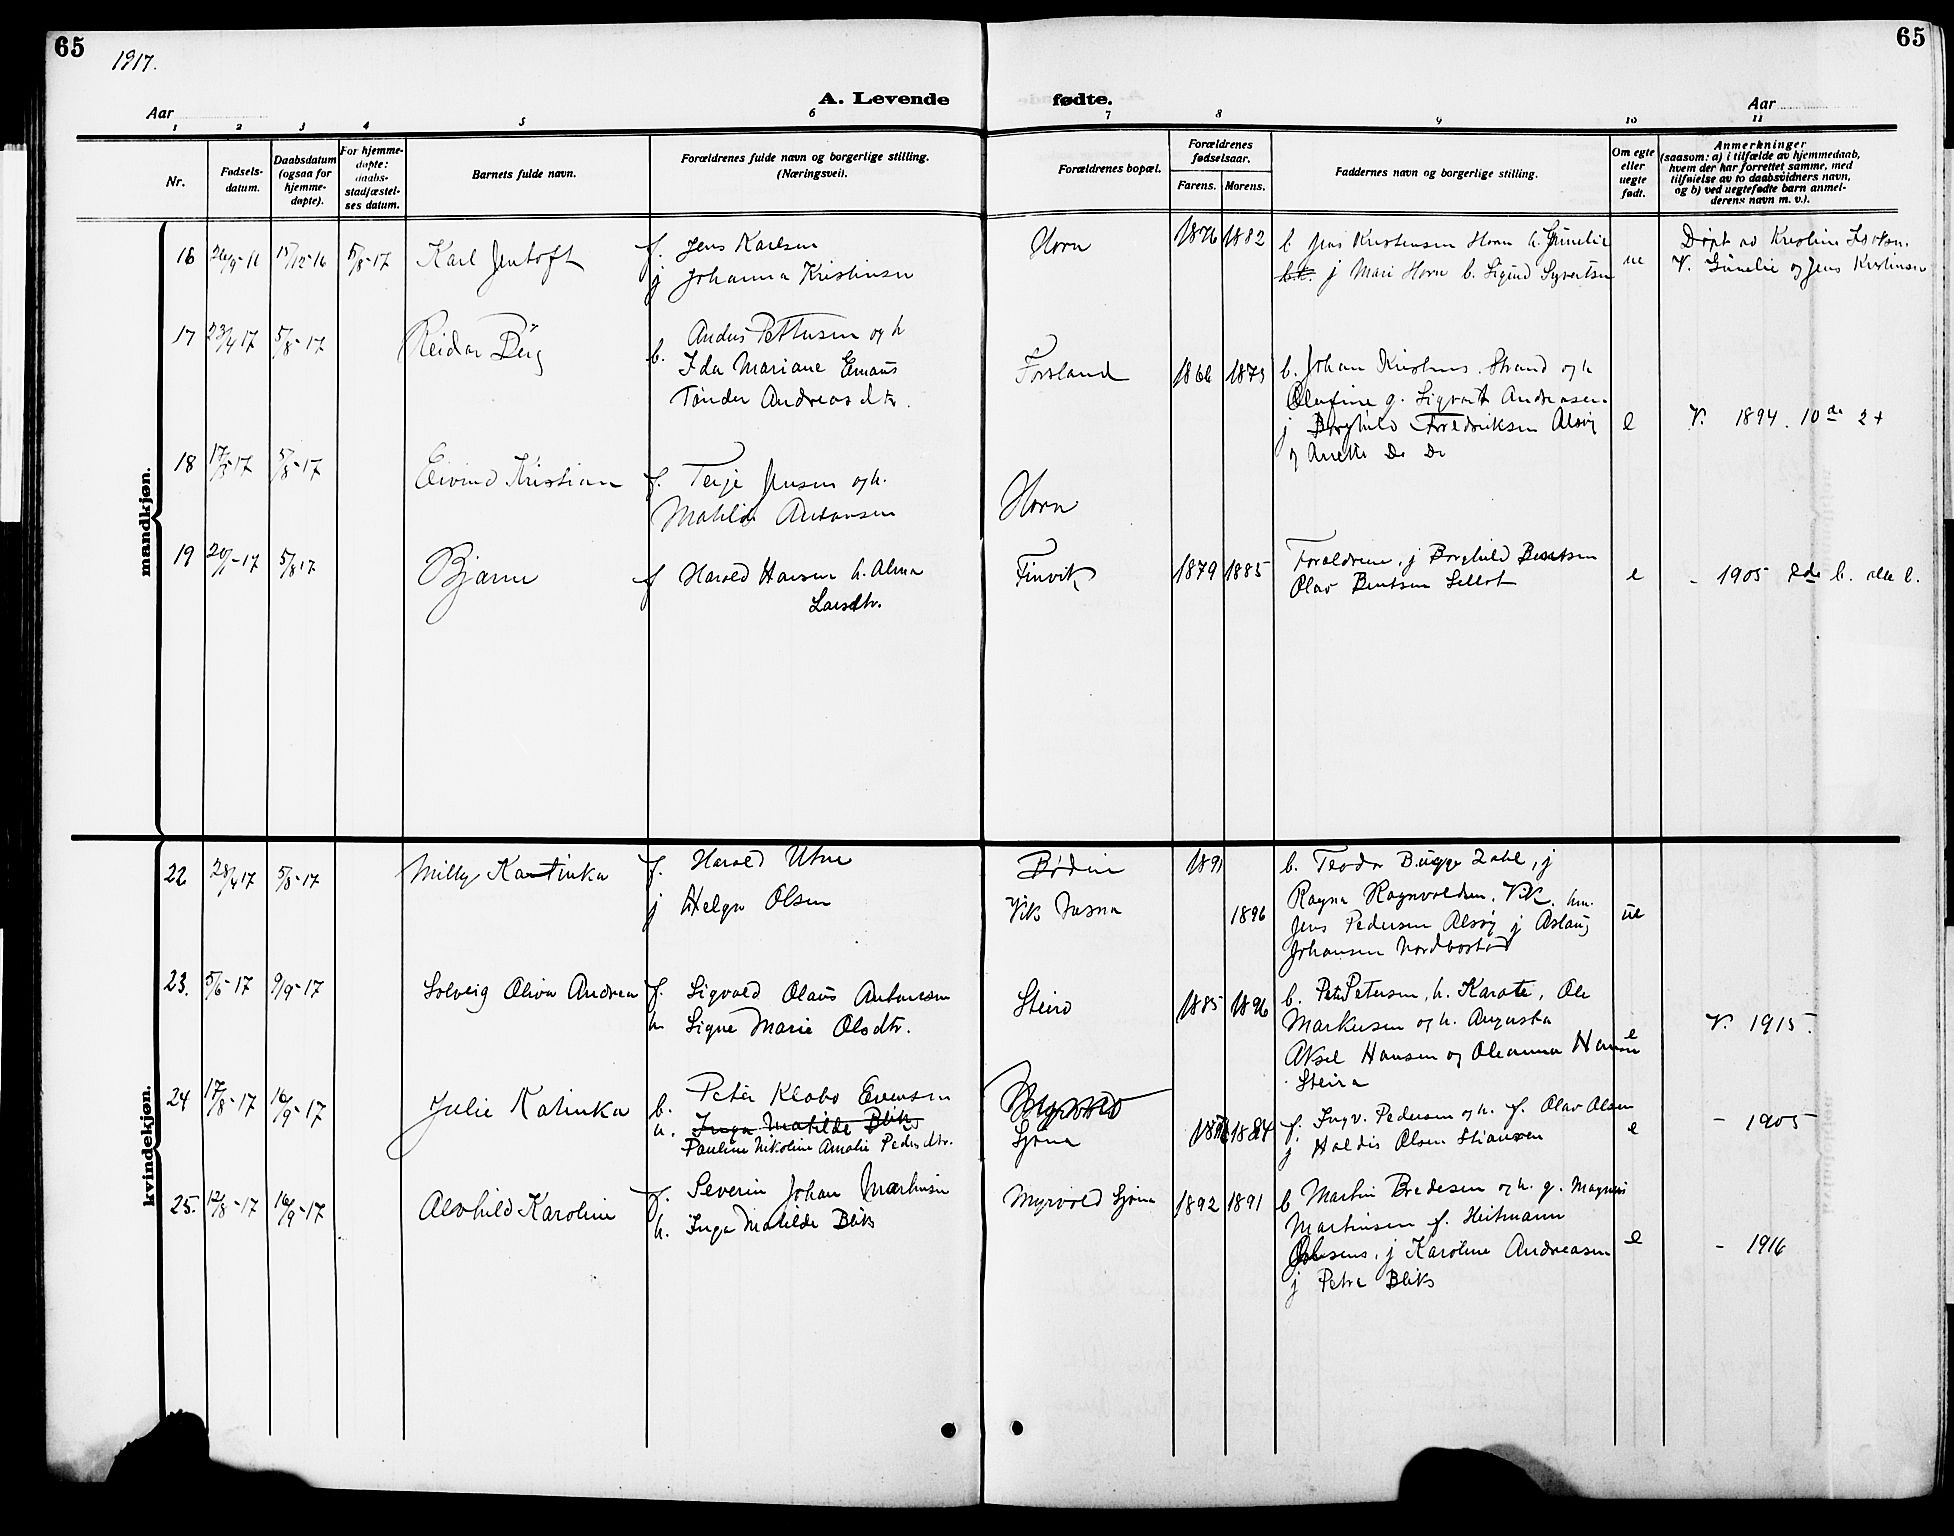 65
65
1917.
A. Levende fødte.
Aar
Aar
1 2 3 4 5 6 7 8 9 10 11
Nr.
Fødsels-
datum.
Daabsdatum
(ogsaa for
hjemme-
døpte).
For hjemme-
døpte:
daabs-
stadfæstel-
ses datum.
Barnets fulde navn.
Forældrenes fulde navn og borgerlige stilling.
(Næringsvei).
Forældrenes bopæl.
Forældrenes
fødselsaar.
Farens. Morens.
Faddernes navn og borgerlige stilling.
Om egte
eller
uegte
født.
Anmerkninger
(saasom: a) i tilfælde av hjemmedaab,
hvem der har forrettet samme, med
tilføielse av to daabsvidners navn,
og b) ved uegtefødte barn anmel-
derens navn m. v.).
mandkjøn.
16 26/9-16 17/12-16 5/8-17 Karl Jentoft
f. Jens Karlsen
j Johanna Kristinsen
Horn
1876 1882
b. Jens Kristensen Horn h. Gunelie
j Mari Horn b. Sigurd Syvertsen
ue
Døpt av Kristine
V. Gunelie og Jens Kristensen
17 23/4 17 5/8-17 Reidar Berg
b. Anders Pettersen og h
Ida Mariane Emaus
Tønder Andreasdtr.
Forsland
1866 1873
b. Johan Kristens. Strand og h
Olufine g. Sigvart Andreasen.
j Borghild Fredriksen Alsøy
og Anette Do Do
e
V. 1894. 10de 2+
18 17/5-17 5/8-17 Eivind Kristian
f. Terje Jensen og h.
Matilde Antonsen
Horn
19 5/8 17 Bjarne
f Harald Hansen h. Alma
Larsdtr.
Finvik
1879 1885
Forældrene, j Borghild Bentsen
Olav Bentsen Sellot
e
- 1905 8de b. alle l.
kvindekjøn.
22 28/4 17 5/8-17 Milly Kantinka
f. Harald Utne
j Helga Olsen
Bodin
Vik Nesna
1891
1896
b. Teodor Bugge Zahl, j
Ragna Ragnvaldsen. Vik. hm.
Jens Pedersen Alsøy j Aslaug
Johansen Nordbostad
ue
23. 5/6-17 9/9-17 Solveig Oliva Andrea
f. Sigvald Olaus Antonsen
h. Signe Marie Olsdtr.
Steiro
1885 1896
b. Peter Petersen, h. Karate, Ole
Markussen og h. Augusta
Aksel Hansen og Oleanna Hansen
Steira
e
V. 1915.
24 17/8-17 16/9-17 Julie Katinka
b. Peter Klabo Evensen
h. Inga Matilde Bliks
Pauline Nikoline Amalie Pedersdtr.
Myrvold
Sjona
1884
f. Ingv. Pedersen og h. f. Olav Olsen
j Haldis Olsen Stiansen
e
- 1905
25. 12/8-17 16/9-17 Alvhild Karoline
f. Severin Johan Martinsen
h. Inga Matilde Bliks
Myrvold Sjona
1892 1891
b Martin Bredesen og h. g. Magnus
Martinsen f. Heitmann
j Karoline Andreasen
j Petra Bliks
e
- 1916